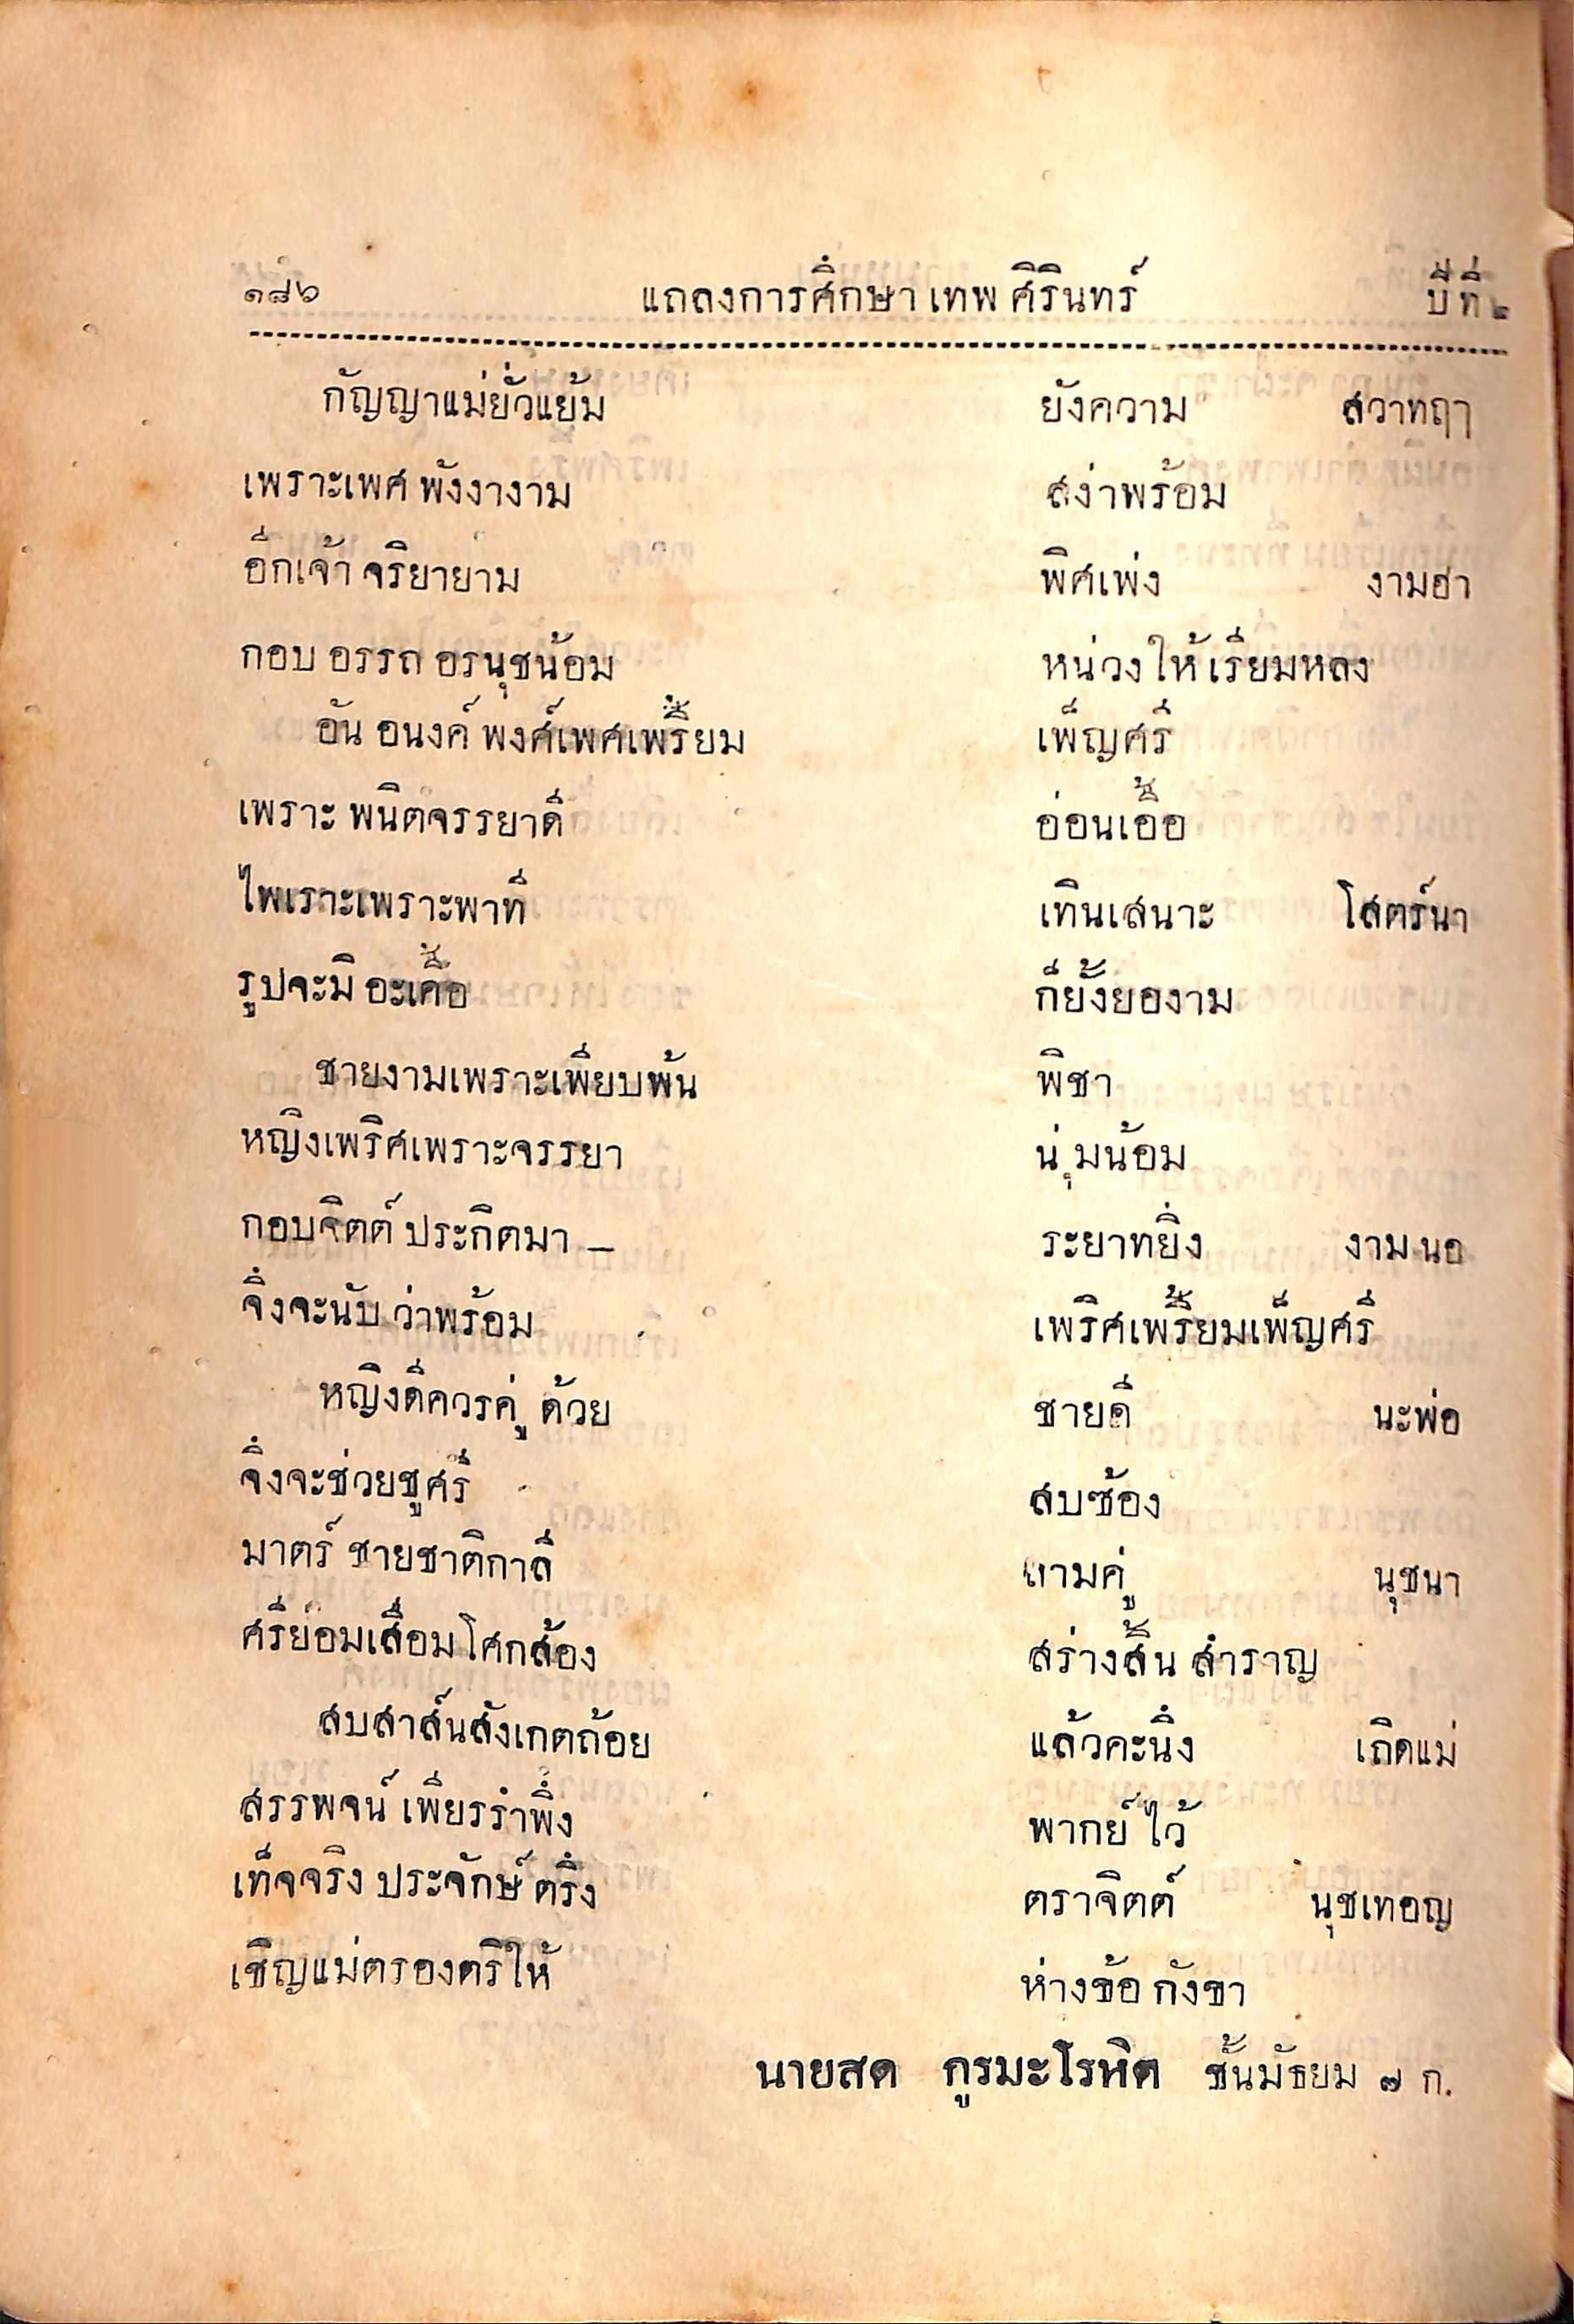 ๑๘๖ แถลงการศึกษาเทพศิรินทร์ ปีที่ ๒
กัญญาแม่ยั่วแย้ม ยังความ สวาทฤๅ
เพราะเพศพังงางาม สง่าพร้อม
อีกเจ้าจริยายาม พิศเพ่ง งามฮา
กอบอรรถอรนุชน้อม หน่วงให้เรียมหลง
อันอนงค์พงศ์เพศเพริ้ยม เพ็ญศรี
เพราะพนิตจรรยาดี อ่อนเอื้อ
ไพเราะเพราะพาที เทินเสนาะ โสตร์นา
รูปจะมิอะเคื้อ ก็ยั้งยองาม
ชายงามเพราะเพียบพ้น พิชา
หญิงเพริศเพราะจรรยา นุ่มน้อม
กอบจิตต์ประกิตมา — ระยาทยิ่ง งามนอ
จึ่งจะนับว่าพร้อม เพริศเพริ้ยมเพ็ญศรี
หญิงดีควรคู่ด้วย ชายดี นะพ่อ
จึ่งจะช่วยชูศรี สบซ้อง
มาตร์ชายชาติกาลี ตามคู่ นุชนา
ศรีย่อมเสื่อมโศกส้อง สร่างสิ้นสำราญ
สบสาส์นสังเกตถ้อย แล้วคะนึง เถิดแม่
สรรพจน์เพียรรำพึง พากย์ไว้
เท็จจริงประจักษ์ตรึง ตราจิตต์ นุชเทอญ
เชิญแม่ตรองตริให้ ห่างข้อกังขา
นายสด กูรมะโรหิต ชั้นมัธยม ๗ ก.